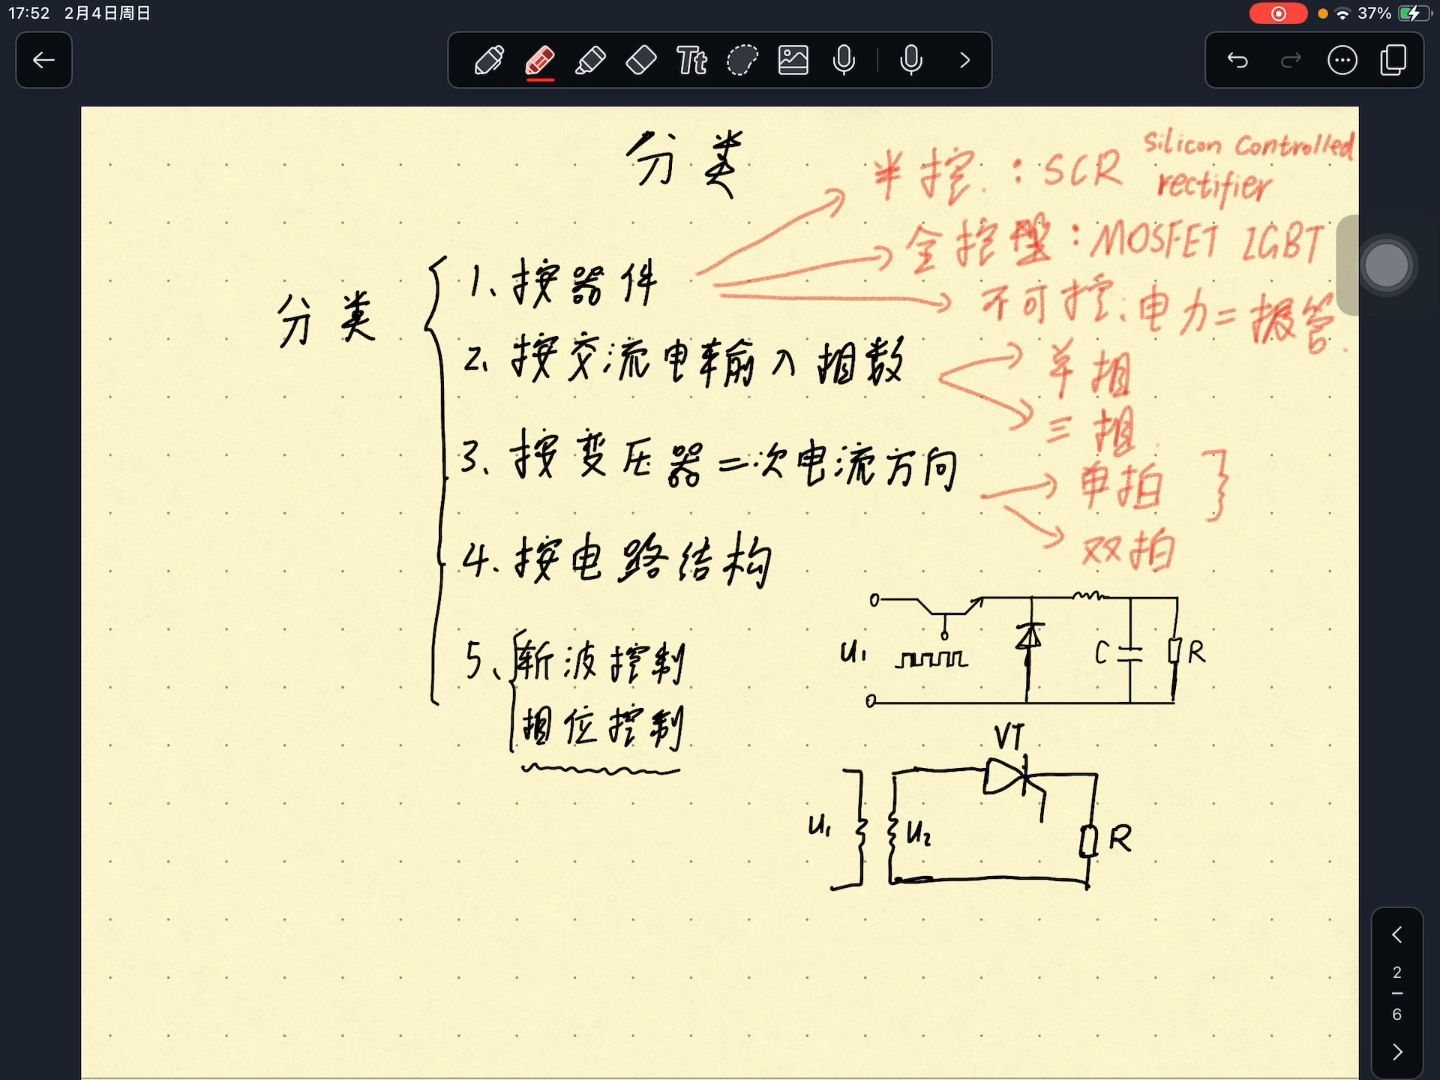 17:52 2月4日周日
37%
Tt
分类
半控:SCR Silicon Controlled
rectifier
全控型:MOSFET IGBT
不可控:电力二极管
分类
1、按器件
2、按交流电输入相数
单相
三相
3、按变压器二次电流方向
单拍
双拍
4、按电路结构
5、斩波控制
相位控制
U₁
C
R
VT
U₁
U₂
R
2
6